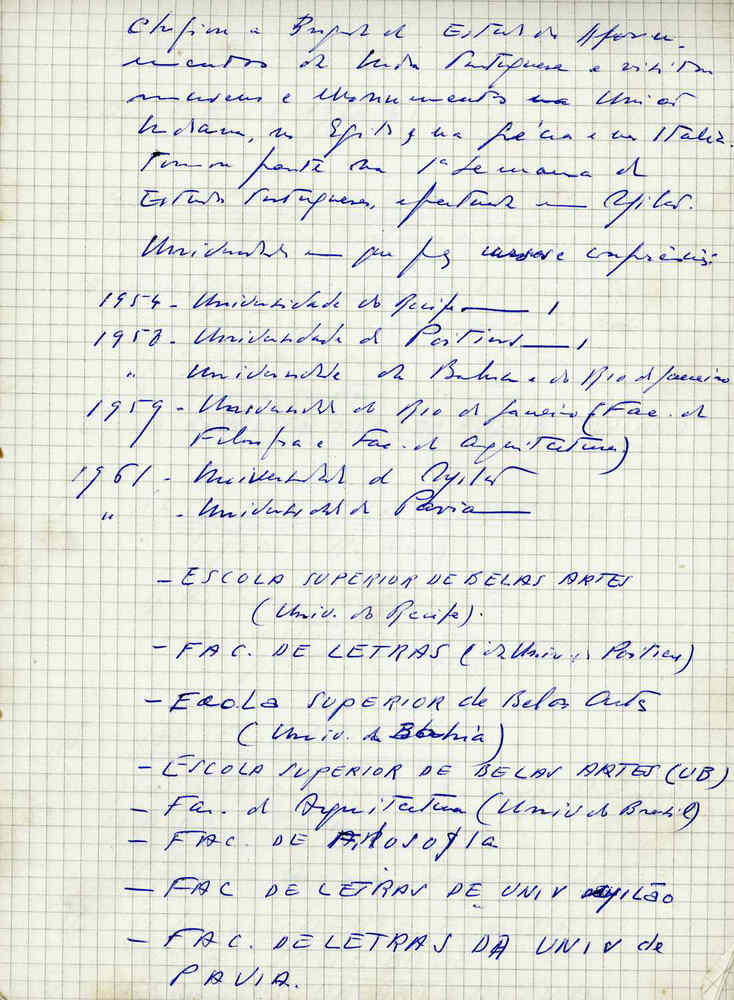 Chefiou a Brigada de Estudo dos
mentos da India Portuguesa e visitou
museus e monumentos na União
Indiana, no Egito, na Grécia e na Italia.
Tomou parte na 1ª Semana de
Estudos Portugueses, efectuada em Milão.
Universidades em que fez cursos e conferências:
1954 - Universidade do Recife — 1
1958 - Universidade de Poitiers — 1
" Universidade da Bahia e do Rio de Janeiro
1959 - Universidade do Rio de Janeiro (Fac. de
Filosofia e Fac. de Arquitectura)
1961 - Universidade de Milão
" - Universidade de Pavia —
- ESCOLA SUPERIOR DE BELAS ARTES
(Univ. do Recife).
- FAC. DE LETRAS (da Univ. Poitiers)
- Escola SUPERIOR de Belas Artes
(Univ. da Bahia)
- ESCOLA SUPERIOR DE BELAS ARTES (UB)
- Fac. de Arquitectura (Univ do Brasil)
- FAC. DE Filosofia
- FAC DE LETRAS DE UNIV Milão
- FAC. DE LETRAS DA UNIV de
PAVIA.